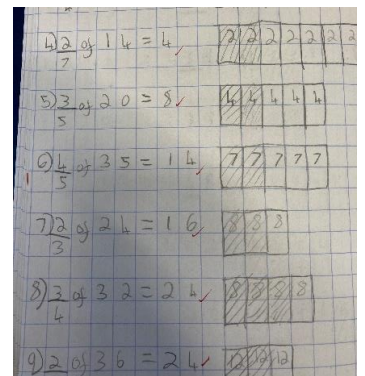 4) 2/7 of 14 = 4 ✓ 2 2 2 2 2 2 2
5) 3/5 of 20 = 8 ✓ 4 4 4 4 4
6) 4/5 of 35 = 14 ✓ 7 7 7 7 7
7) 2/3 of 24 = 16 ✓ 8 8 8
8) 3/4 of 32 = 24 ✓ 8 8 8 8
9) 2 of 36 = 24 ✓ 12 12 12